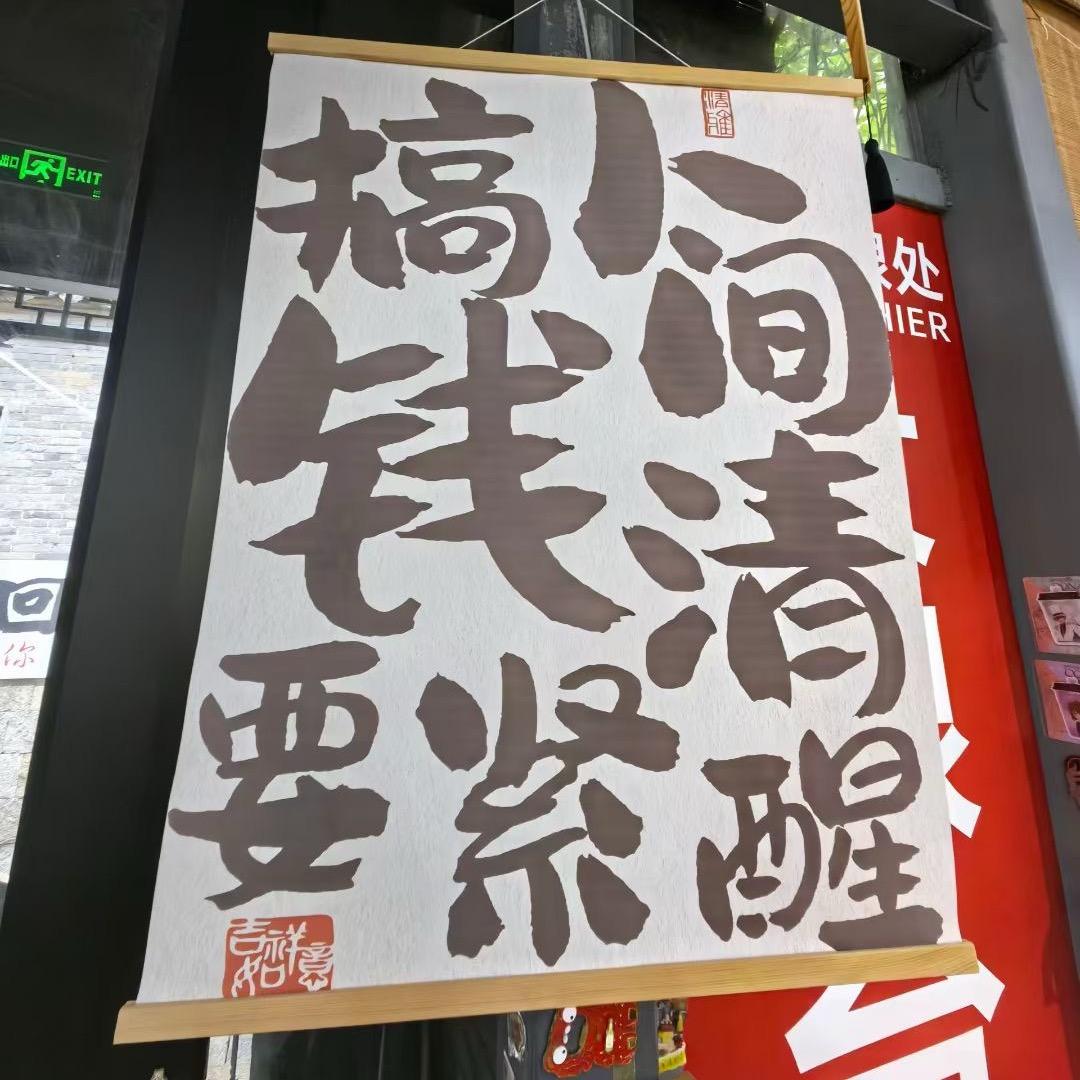 人间清醒
搞钱
要紧
吉祥如意
出口 EXIT
处
HIER
回
你